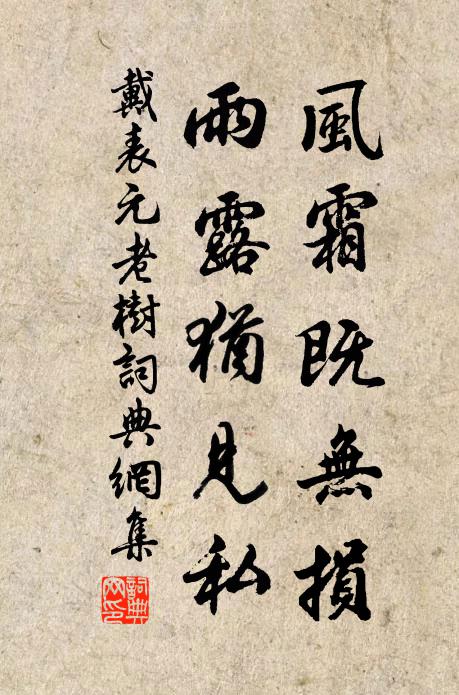 風霜既無損
雨露猶見私
戴表元老樹詞典網集
詞典網印